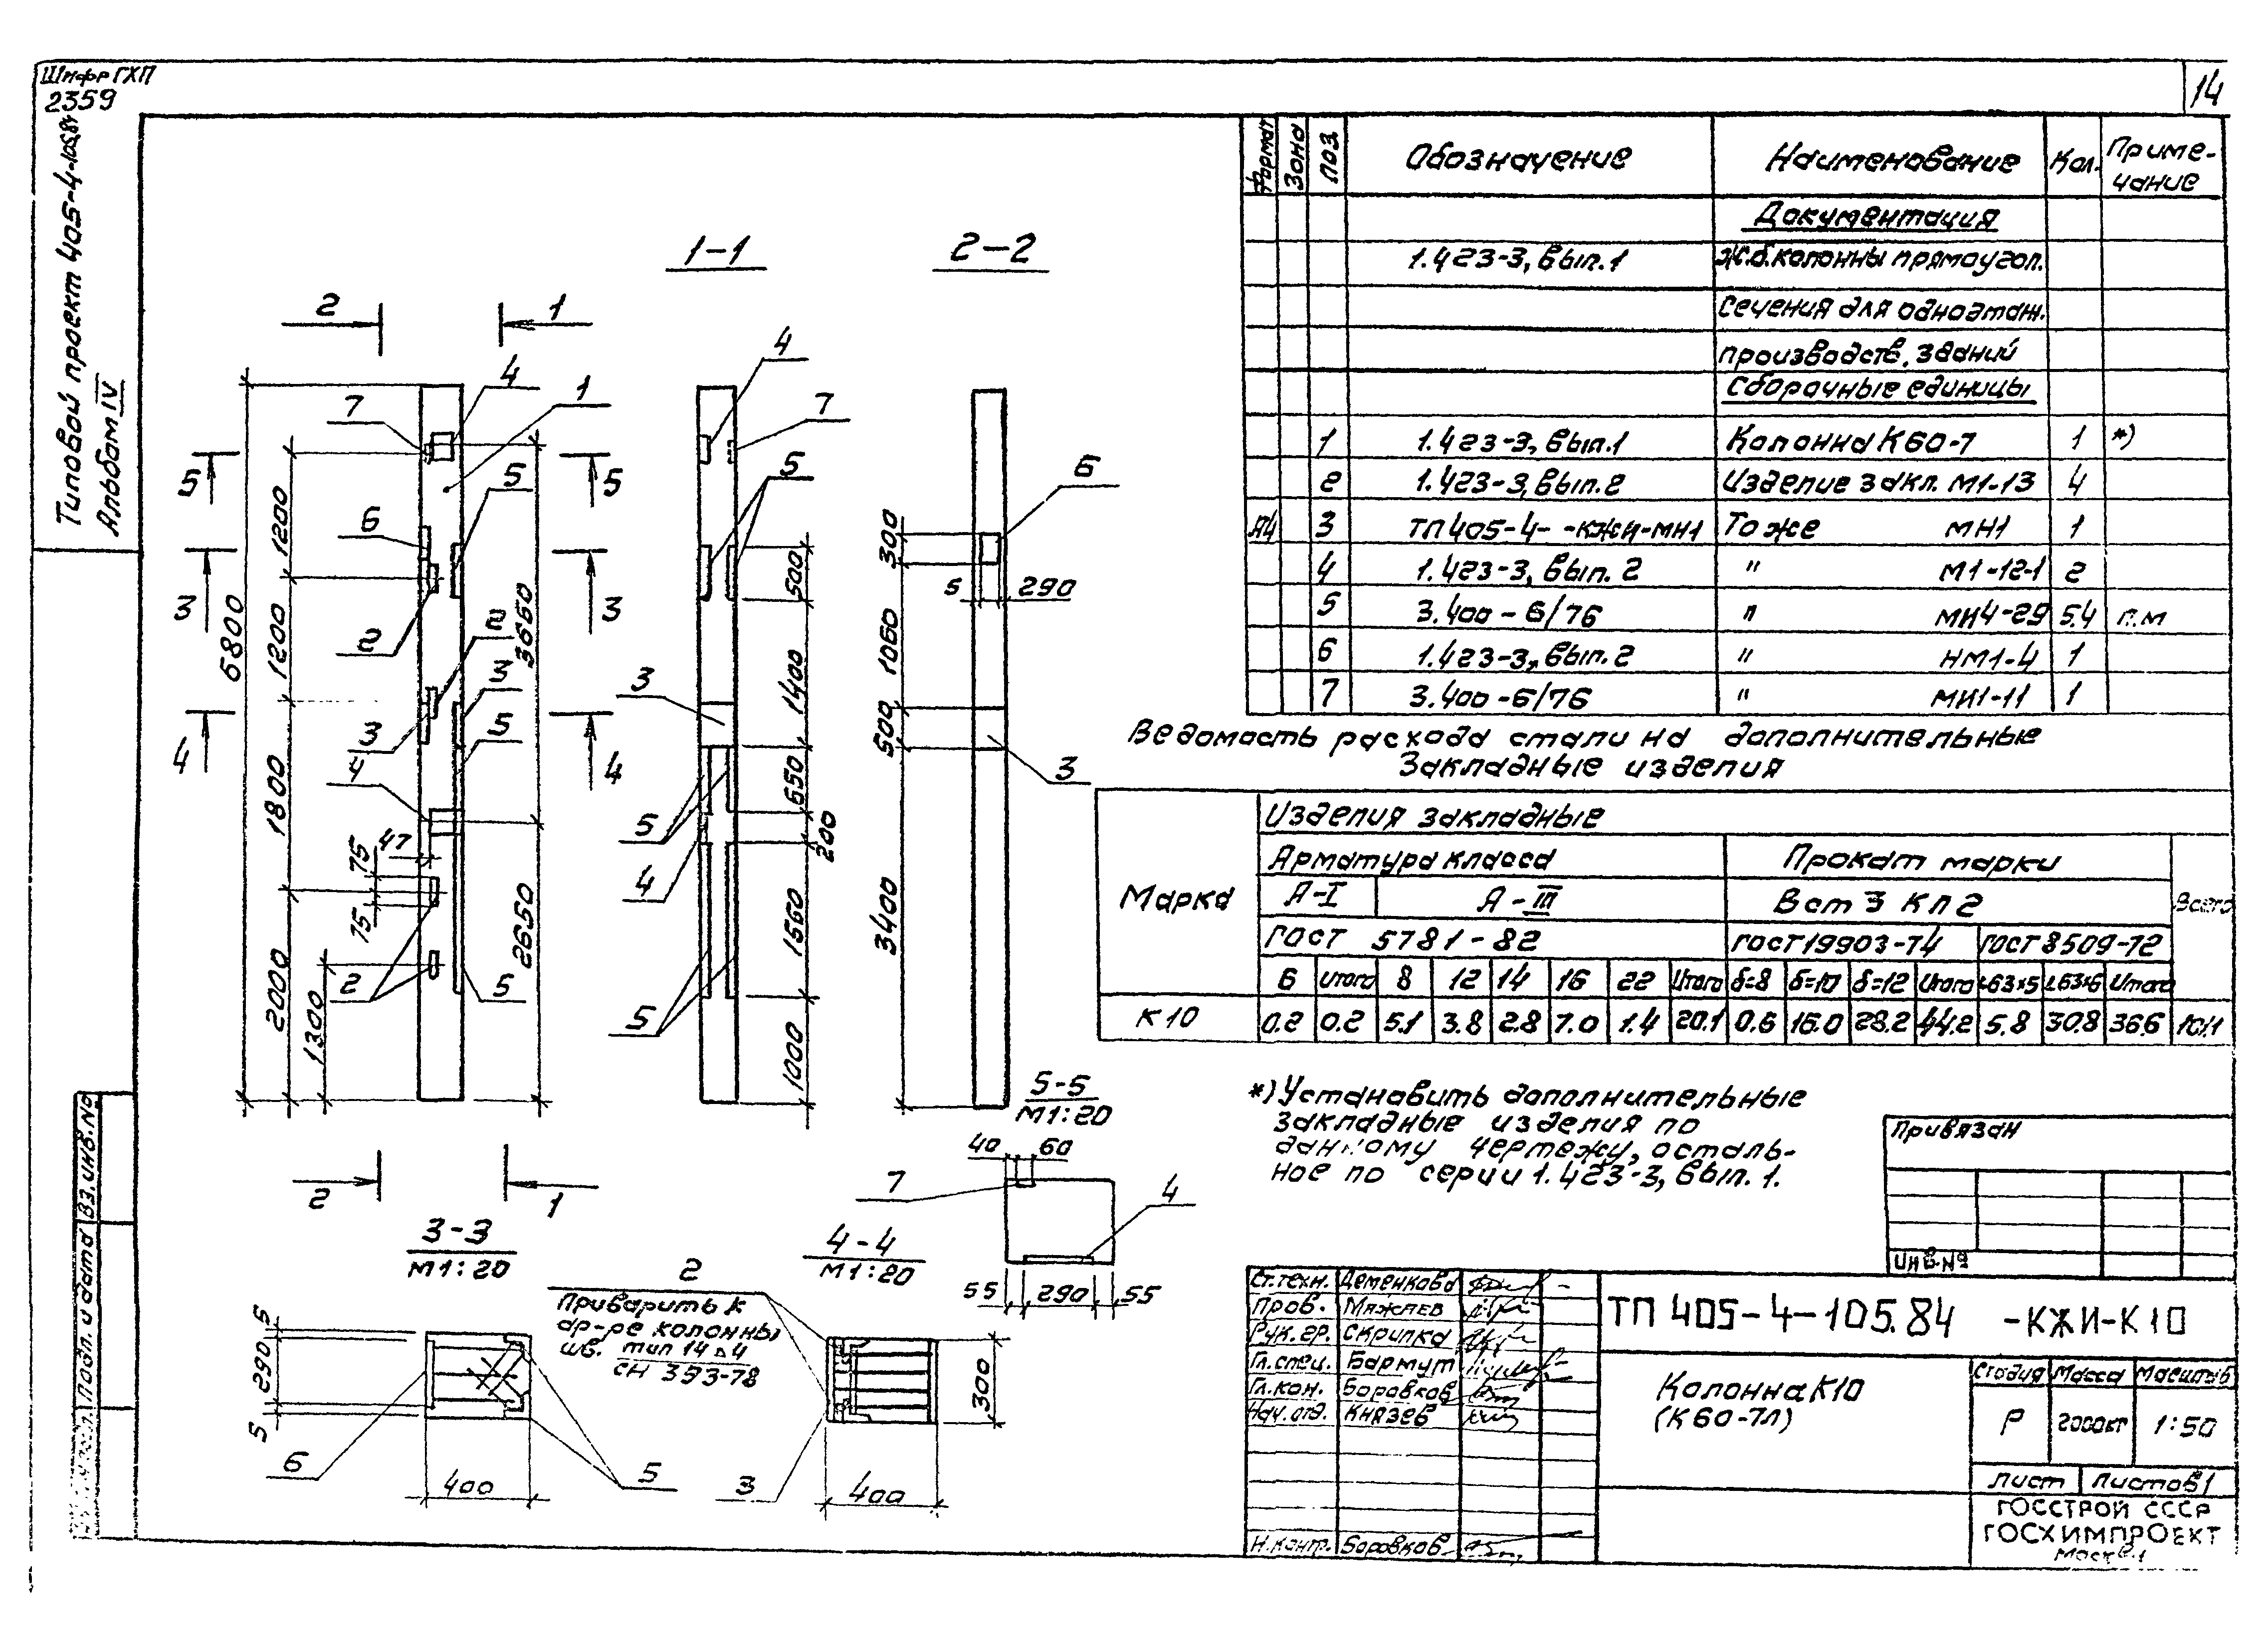 Шифр ГХП
2359
14
Типовой проект 405-4-105.84
Альбом IV
Вз.инв.№
Подп. и дата
1-1
2-2
2
1
4
1
7
5
5
5
6
1200
3
3
2
1200
2
3660
6800
3
5
3
4
4
4
1800
47
75
75
2
5
2650
2000
1300
2
1
4
7
5
500
1400
3
650
200
5
4
1560
5
1000
6
300
5
290
1060
500
3
3400
5-5
М1:20
40
60
7
4
55
290
55
3-3
М1:20
5
290
5
6
400
5
2
Приварить к
ар-ре колонны
шв. тип 14 ⊿4
СН 393-78
4-4
М1:20
300
3
400
Формат Зона Поз. Обозначение Наименование Кол. Примечание
Документация
1.423-3, вып.1 Ж.б.колонны прямоугол.
сечения для одноэтаж.
производств. зданий
Сборочные единицы
1 1.423-3, вып.1 Колонна К60-7 1 *)
2 1.423-3, вып.2 Изделие закл. М1-13 4
А4 3 ТП 405-4- -КЖИ-МН1 То же МН1 1
4 1.423-3, вып. 2 " М1-12-1 2
5 3.400-6/76 " МИ4-29 5.4 п.м
6 1.423-3, вып.2 " НМ1-4 1
7 3.400-6/76 " МИ1-11 1
Ведомость расхода стали на дополнительные
закладные изделия
Марка
Изделия закладные
Арматура класса Прокат марки
А-I А-III Вст 3 кп 2 Всего
ГОСТ 5781-82 ГОСТ 19903-74 ГОСТ 8509-72
6 Итого 8 12 14 16 22 Итого δ=8 δ=10 δ=12 Итого ∟63х5 ∟63х6 Итого
К10 0.2 0.2 5.1 3.8 2.8 7.0 1.4 20.1 0.6 16.0 28.2 44.2 5.8 30.8 36.6
*) Установить дополнительные
закладные изделия по
данному чертежу, осталь-
ное по серии 1.423-3, вып. 1.
Привязан
Инв.№
Ст.техн. Деменкова
Пров. Мяжлев
Рук.гр. Скрипка
Гл.спец. Бармут
Гл.кон. Боровков
Нач.отд. Князев
Н.контр. Боровков
ТП 405-4-105.84 -КЖИ-К10
Колонна К10
(К60-7л)
Стадия Масса Масштаб
Р 2000кг 1:50
Лист Листов 1
ГОССТРОЙ СССР
ГОСХИМПРОЕКТ
Москва